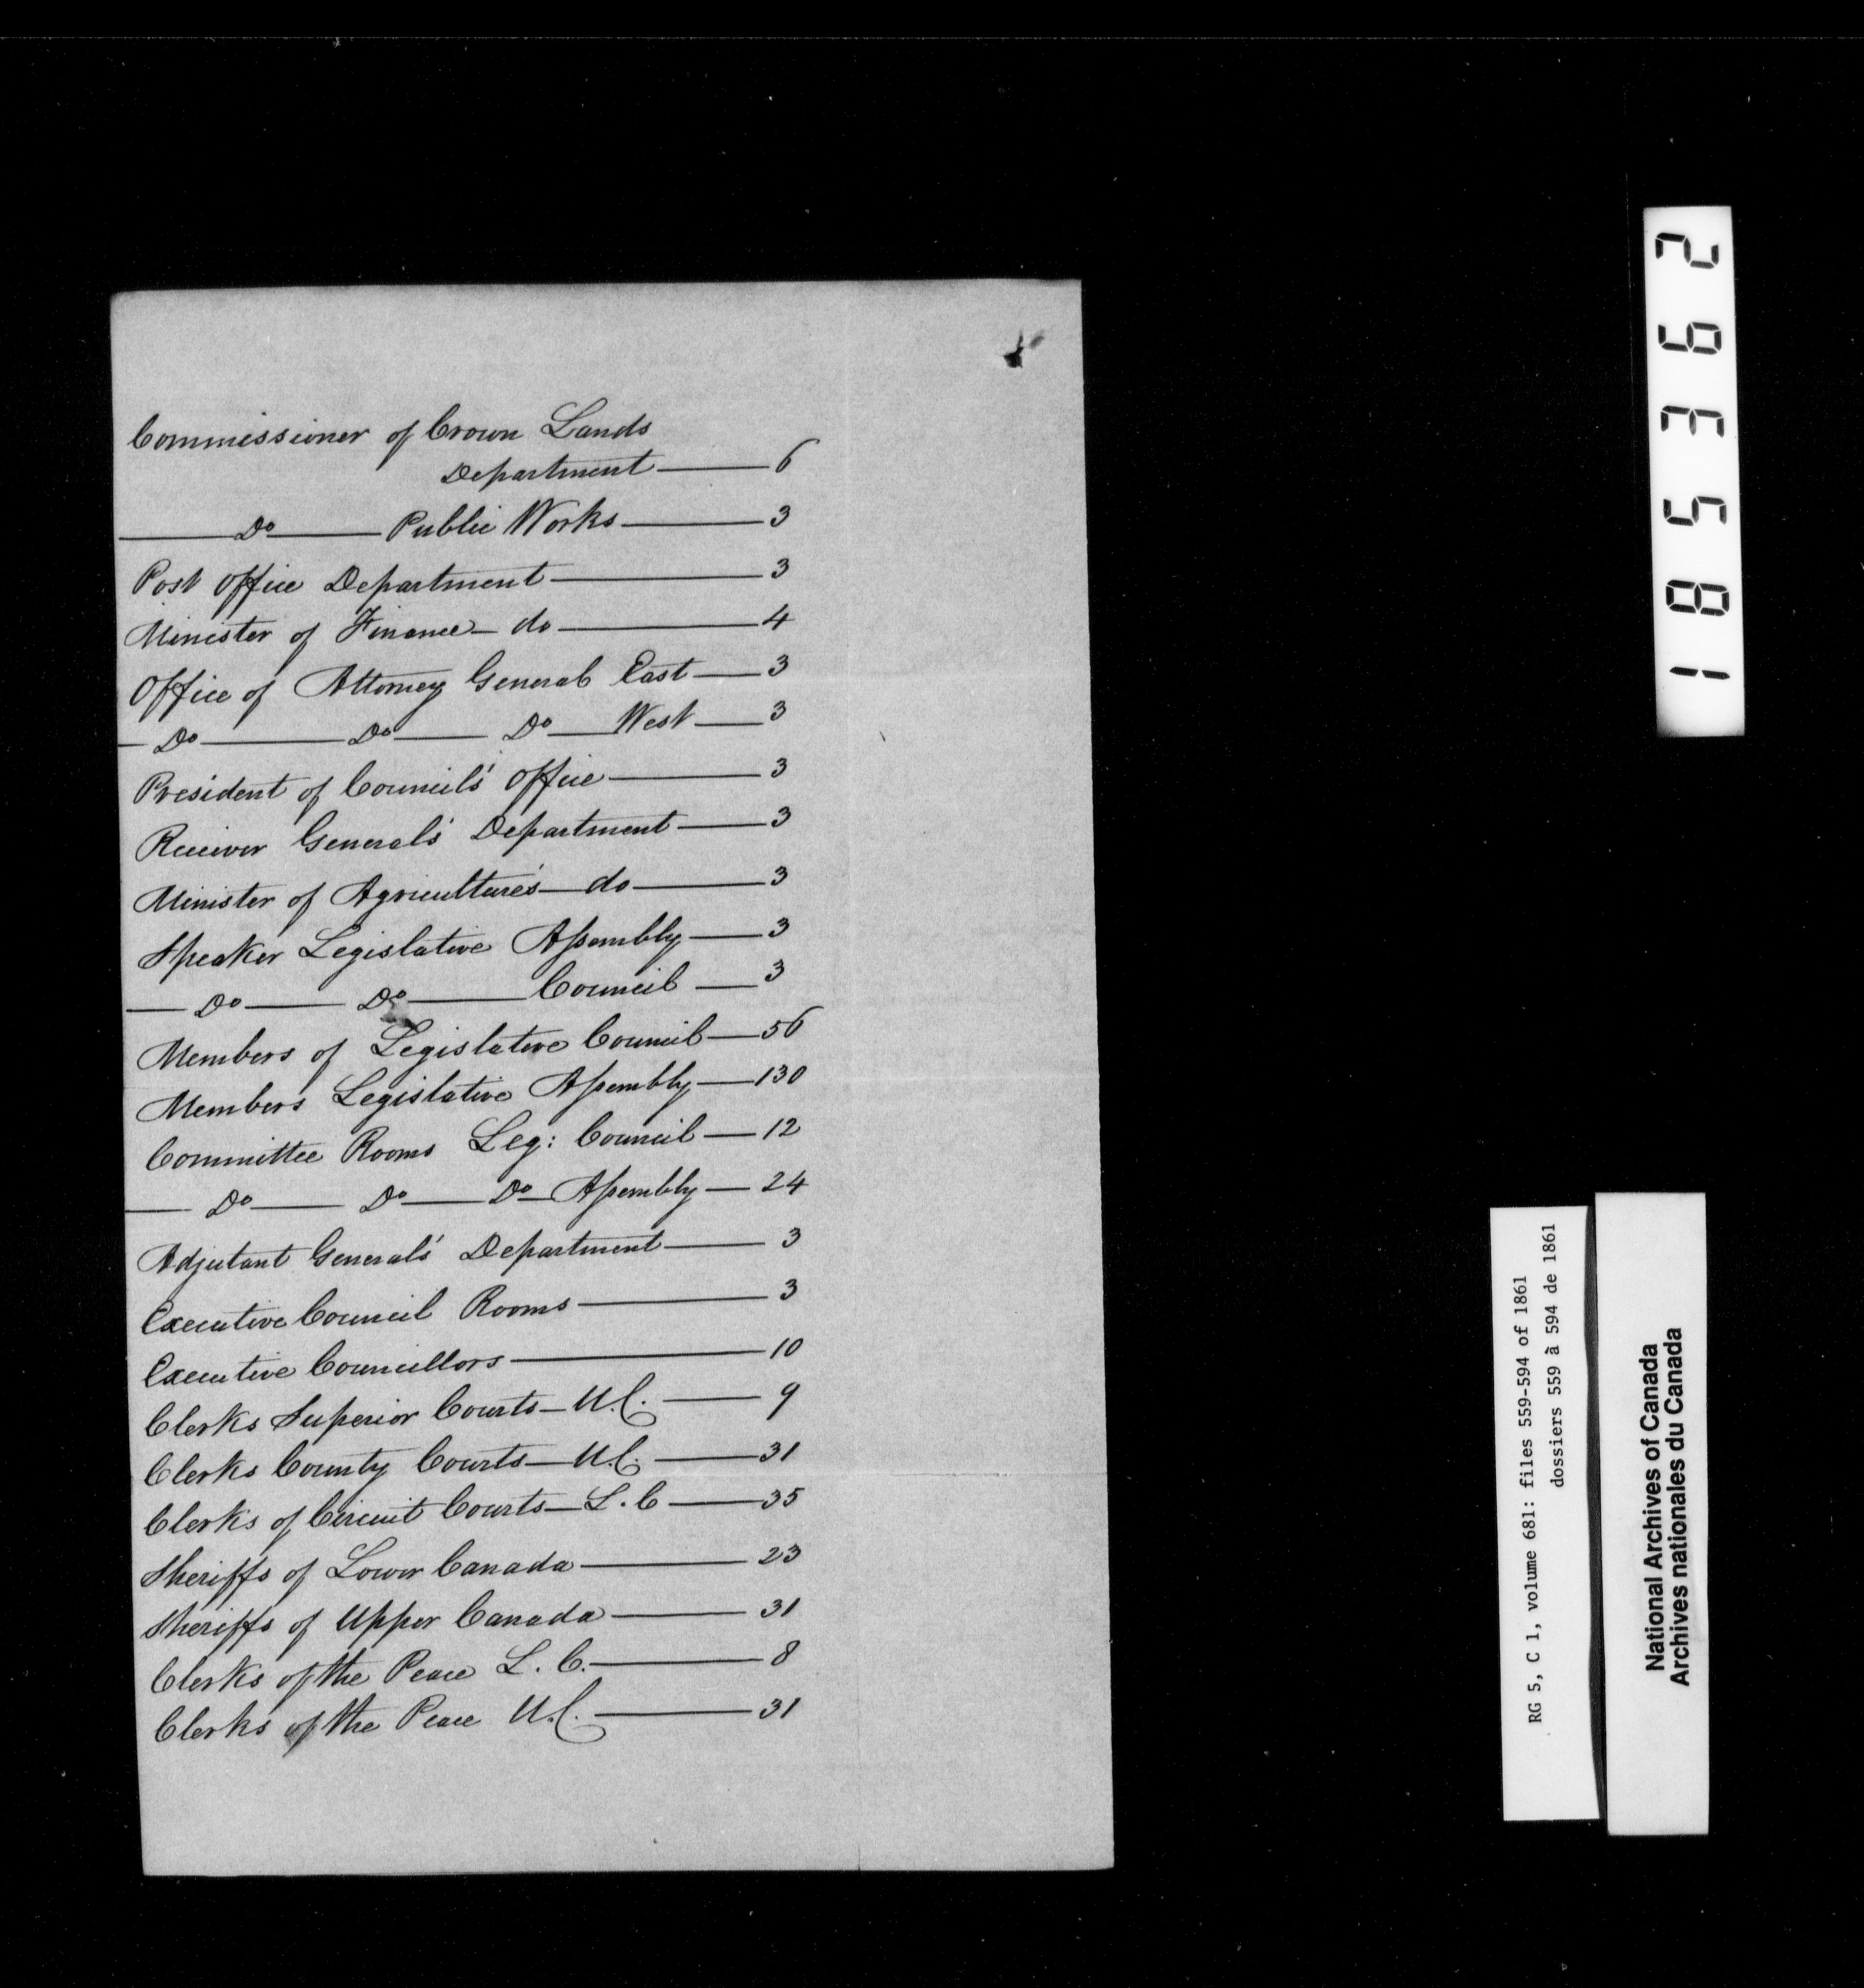 Commissioner of Crown Lands
Department — 6
— Do — Public Works — 3
Post Office Department — 3
Minister of Finance — do — 4
Office of Attorney General East — 3
— Do — Do — Do — West — 3
President of Council's Office — 3
Receiver General's Department — 3
Minister of Agriculture's — do — 3
Speaker Legislative Assembly — 3
— Do — Do — Council — 3
Members of Legislative Council — 56
Members Legislative Assembly — 130
Committee Rooms Leg: Council — 12
— Do — Do — Do — Assembly — 24
Adjutant General's Department — 3
Executive Council Rooms — 3
Executive Councillors — 10
Clerks Superior Courts — U.C. — 9
Clerks County Courts — U.C. — 31
Clerks of Circuit Courts — L.C — 35
Sheriffs of Lower Canada — 23
Sheriffs of Upper Canada — 31
Clerks of the Peace L.C. — 8
Clerks of the Peace U.C. — 31
185362
RG 5, C 1, volume 681: files 559-594 of 1861
dossiers 559 à 594 de 1861
National Archives of Canada
Archives nationales du Canada